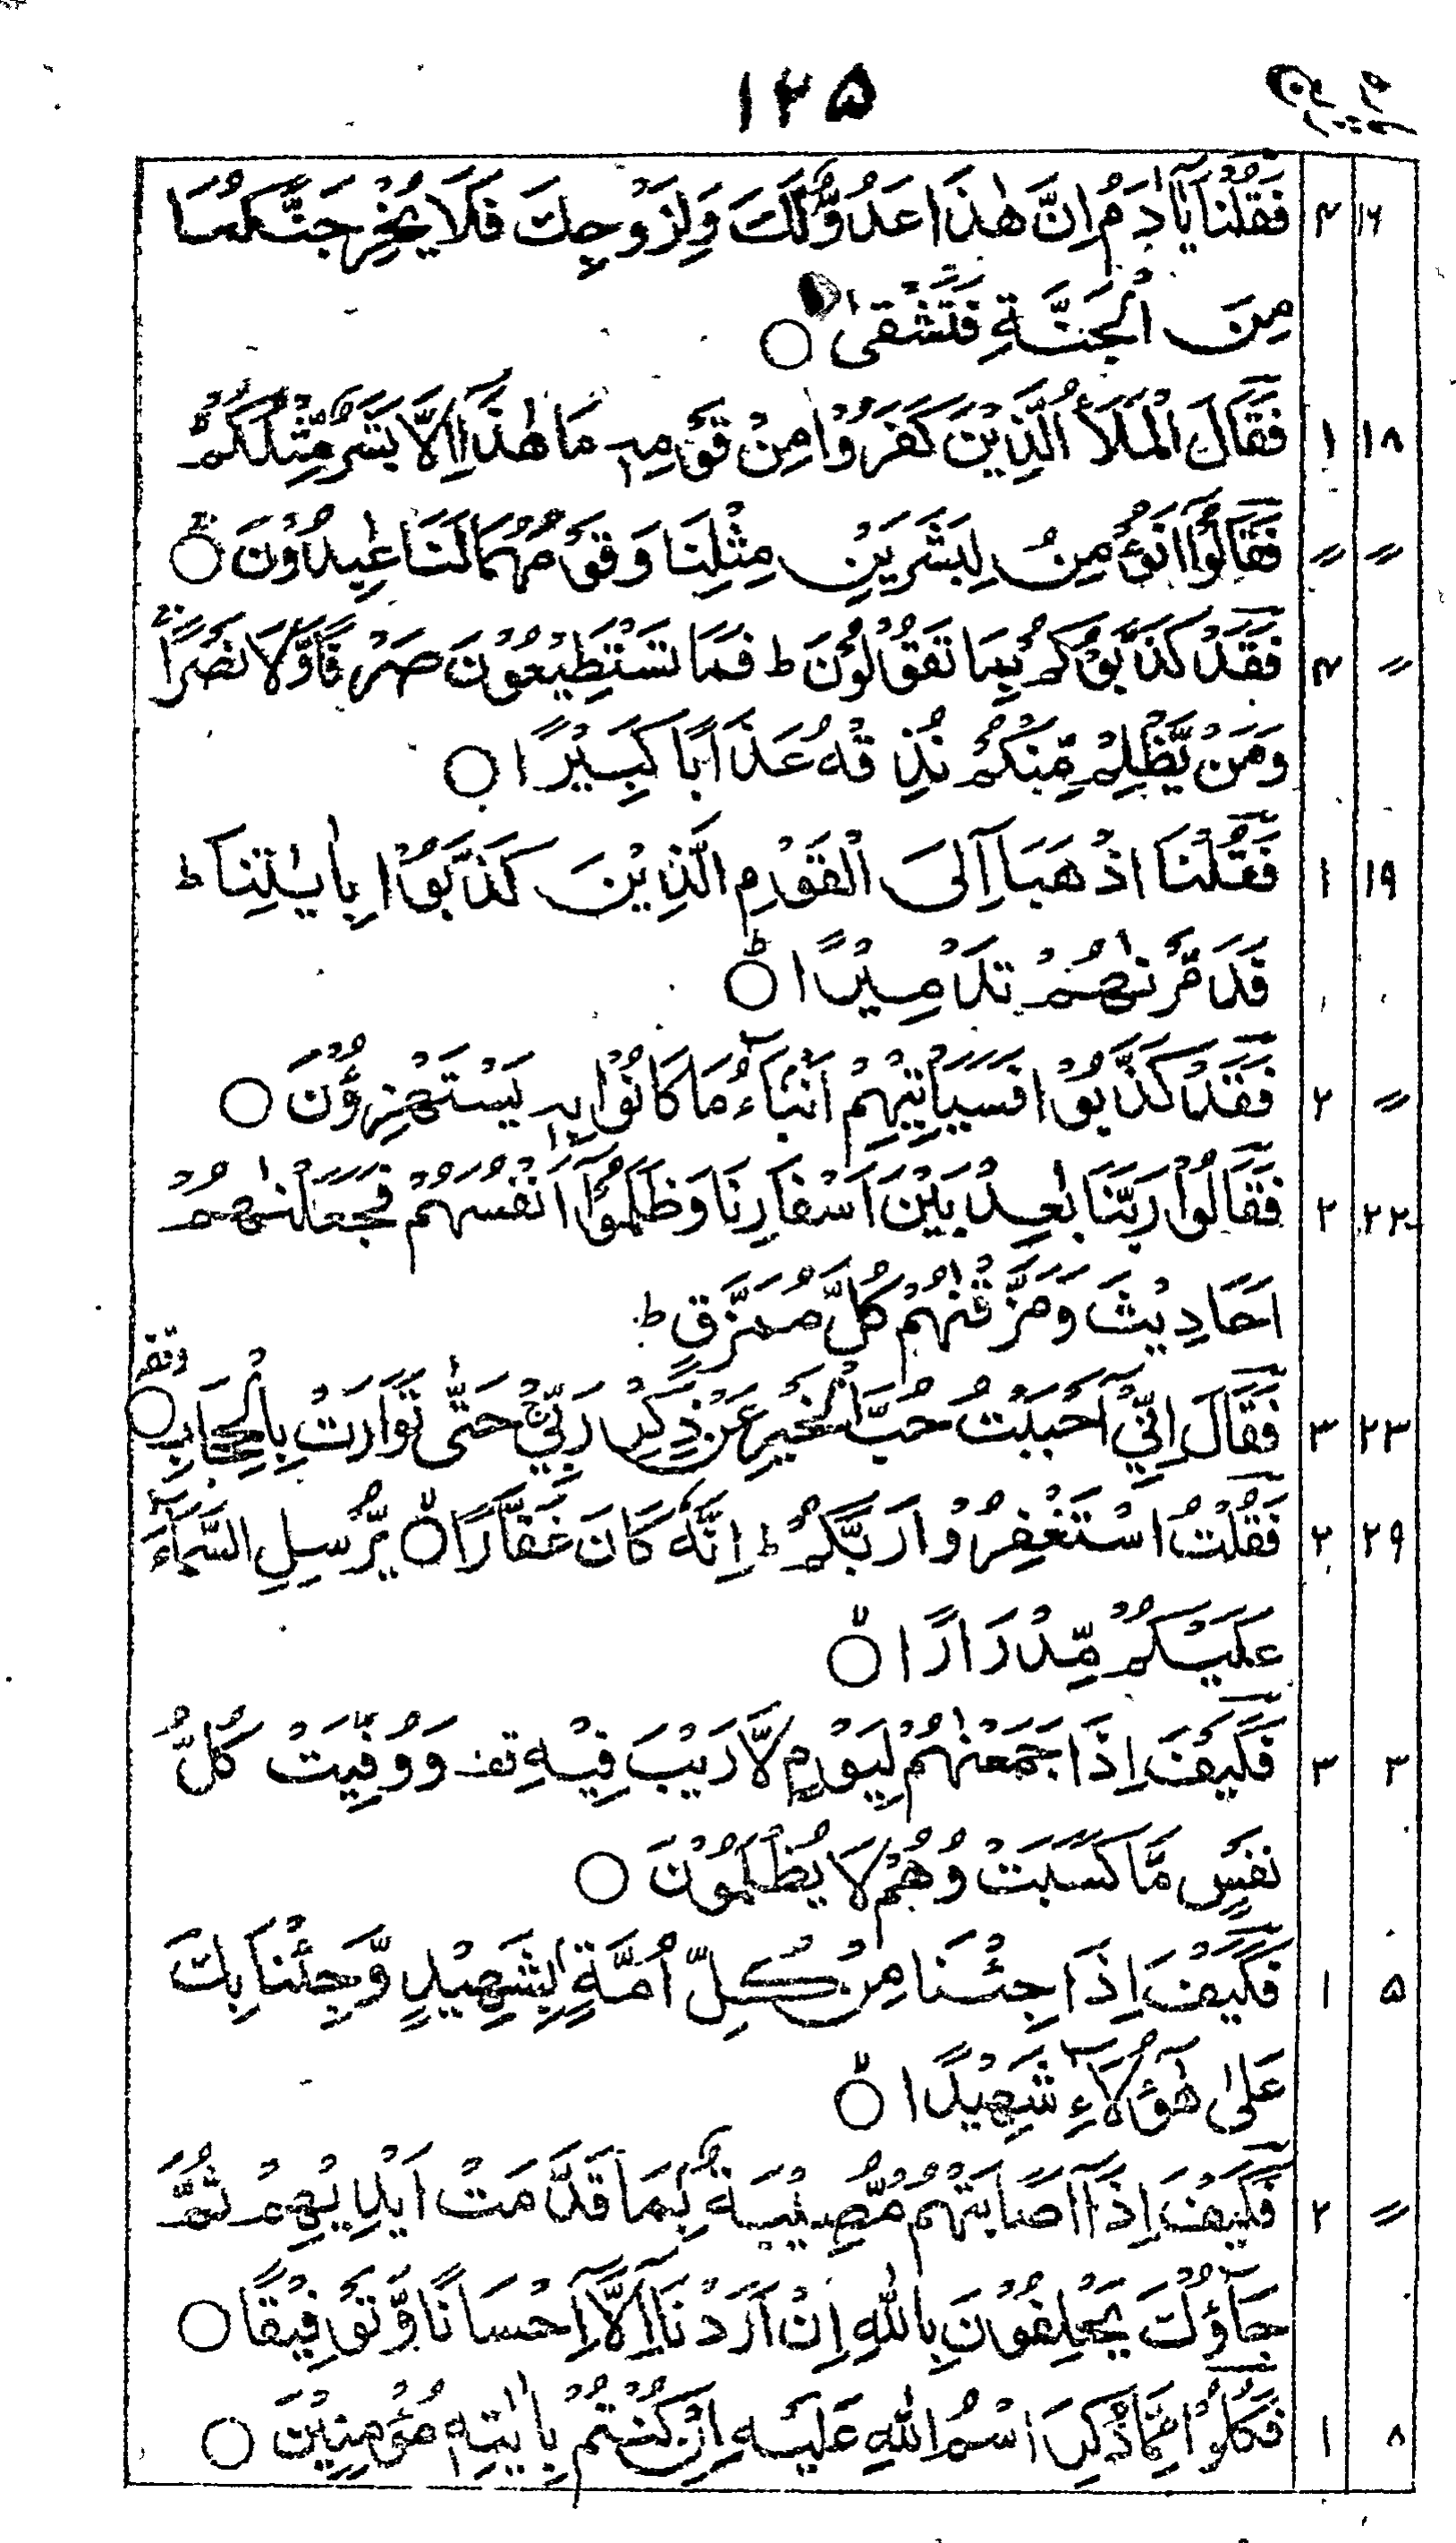 ۱۲۵
۱۶ ۴ فَقُلْنَا يٰٓاٰدَمُ اِنَّ هٰذَا عَدُوٌّ لَّكَ وَلِزَوْجِكَ فَلَا يُخْرِجَنَّكُمَا
مِنَ الْجَنَّةِ فَتَشْقٰى ○
۱۸ ۱ فَقَالَ الْمَلَؤُا الَّذِيْنَ كَفَرُوْا مِنْ قَوْمِهٖ مَا هٰذَآ اِلَّا بَشَرٌ مِّثْلُكُمْ
〃 〃 فَقَالُوْٓا اَنُؤْمِنُ لِبَشَرَيْنِ مِثْلِنَا وَقَوْمُهُمَا لَنَا عٰبِدُوْنَ ○
〃 ۴ فَقَدْ كَذَّبُوْكُمْ بِمَا تَقُوْلُوْنَ ط فَمَا تَسْتَطِيْعُوْنَ صَرْفًا وَّلَا نَصْرًا ج
وَمَنْ يَّظْلِمْ مِّنْكُمْ نُذِقْهُ عَذَابًا كَبِيْرًا ○
۱۹ ۱ فَقُلْنَا اذْهَبَآ اِلَى الْقَوْمِ الَّذِيْنَ كَذَّبُوْا بِاٰيٰتِنَا ط
فَدَمَّرْنٰهُمْ تَدْمِيْرًا ○ ط
〃 ۲ فَقَدْ كَذَّبُوْا فَسَيَاْتِيْهِمْ اَنْۢبٰٓؤُا مَا كَانُوْا بِهٖ يَسْتَهْزِءُوْنَ ○
۲۲ ۲ فَقَالُوْا رَبَّنَا بٰعِدْ بَيْنَ اَسْفَارِنَا وَظَلَمُوْٓا اَنْفُسَهُمْ فَجَعَلْنٰهُمْ
اَحَادِيْثَ وَمَزَّقْنٰهُمْ كُلَّ مُمَزَّقٍ ط
۲۳ ۳ فَقَالَ اِنِّيْٓ اَحْبَبْتُ حُبَّ الْخَيْرِ عَنْ ذِكْرِ رَبِّيْ ج حَتّٰى تَوَارَتْ بِالْحِجَابِ ○ وقفہ
۲۹ ۲ فَقُلْتُ اسْتَغْفِرُوْا رَبَّكُمْ ط اِنَّهٗ كَانَ غَفَّارًا ○ لا يُّرْسِلِ السَّمَآءَ
عَلَيْكُمْ مِّدْرَارًا ○ لا
۳ ۳ فَكَيْفَ اِذَا جَمَعْنٰهُمْ لِيَوْمٍ لَّا رَيْبَ فِيْهِ قف وَوُفِّيَتْ كُلُّ
نَفْسٍ مَّا كَسَبَتْ وَهُمْ لَا يُظْلَمُوْنَ ○
۵ ۱ فَكَيْفَ اِذَا جِئْنَا مِنْ كُلِّ اُمَّةٍۭ بِشَهِيْدٍ وَّجِئْنَا بِكَ
عَلٰى هٰٓؤُلَآءِ شَهِيْدًا ○ لا
〃 ۲ فَكَيْفَ اِذَآ اَصَابَتْهُمْ مُّصِيْبَةٌۢ بِمَا قَدَّمَتْ اَيْدِيْهِمْ ثُمَّ
جَآءُوْكَ يَحْلِفُوْنَ بِاللّٰهِ اِنْ اَرَدْنَآ اِلَّآ اِحْسَانًا وَّتَوْفِيْقًا ○
۸ ۱ فَكُلُوْا مِمَّا ذُكِرَ اسْمُ اللّٰهِ عَلَيْهِ اِنْ كُنْتُمْ بِاٰيٰتِهٖ مُؤْمِنِيْنَ ○